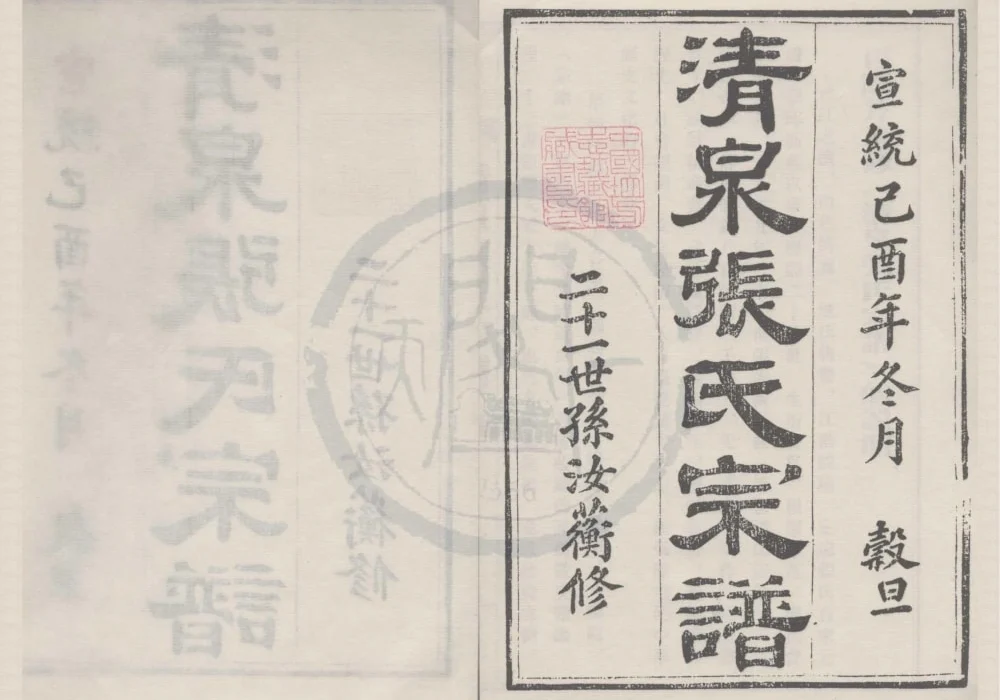 宣統己酉年冬月 穀旦
清泉張氏宗譜
二十一世孫汝蘅修